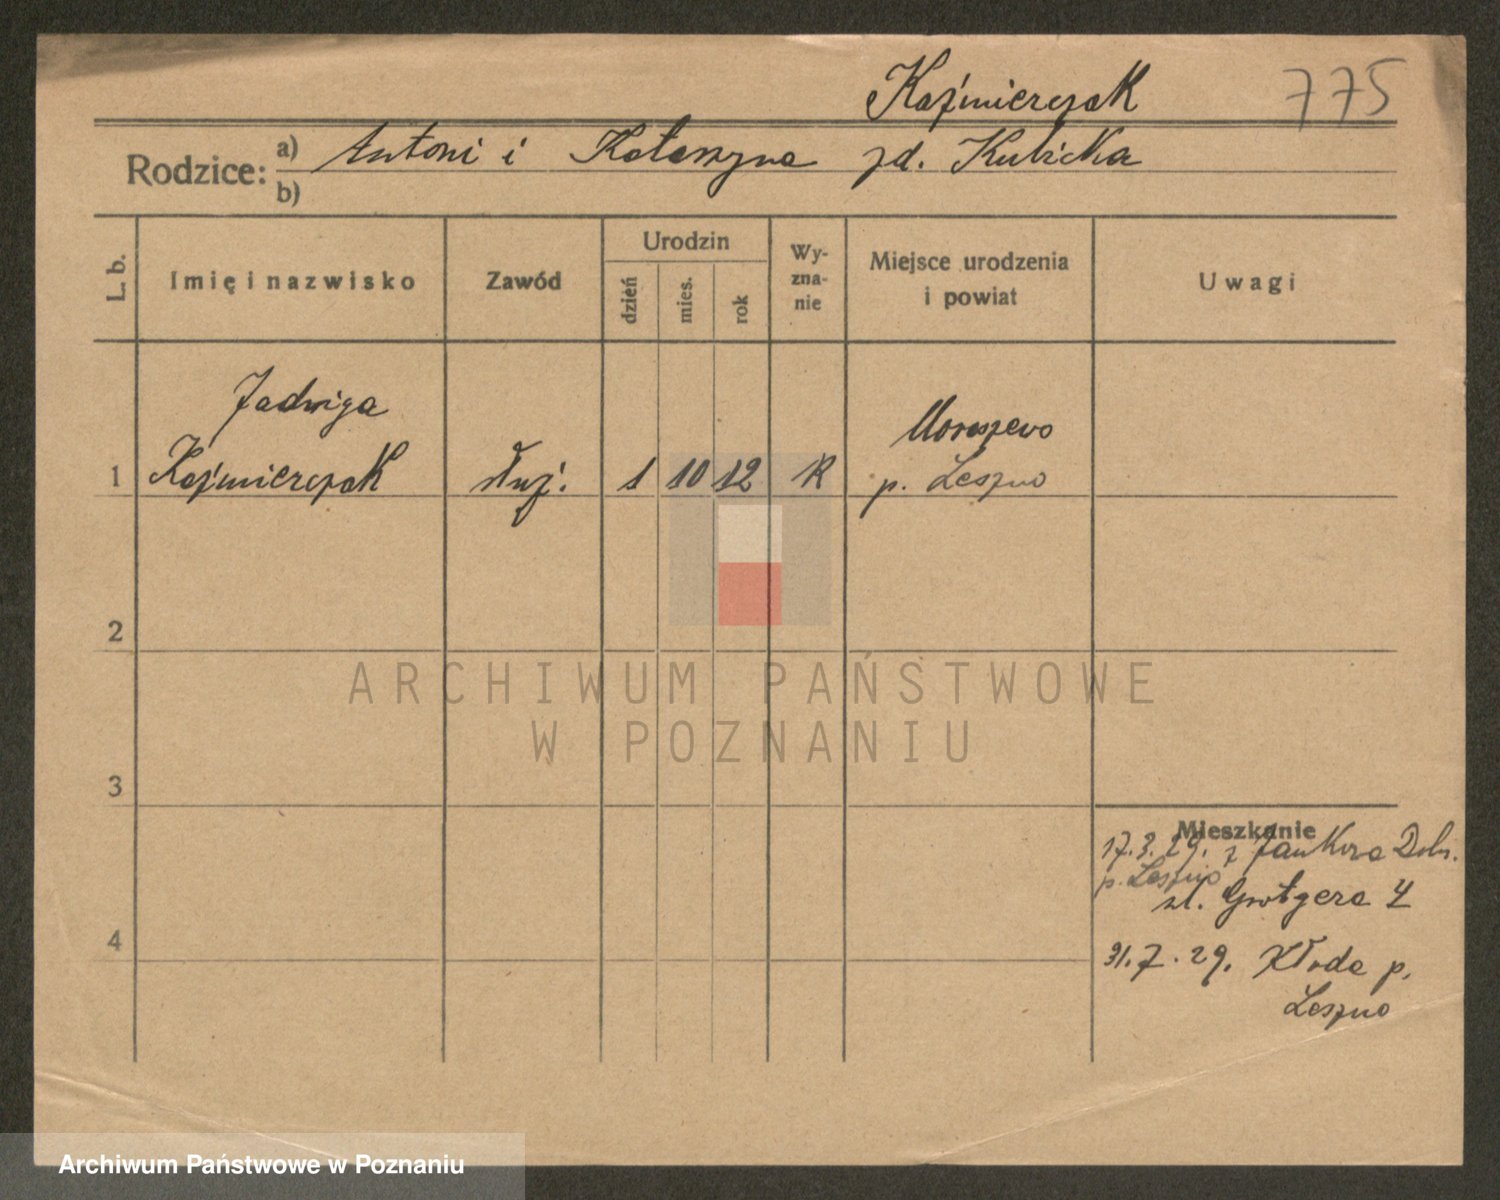 Kaźmierczak 775
Rodzice: a) Antoni i Katarzyna zd. Kubicka
b)
L. b.
Imię i nazwisko
Zawód
Urodzin
dzień
mies.
rok
Wy-
zna-
nie
Miejsce urodzenia
i powiat
Uwagi
Jadwiga
1 Kaźmierczak służ. 1 10 12 R
Moraszewo
p. Leszno
2
3
4
Mieszkanie
17.3.29. z Jankowa Doln.
p. Leszno
ul. Grotgera 4
31.7.29. Kłoda p.
Leszno
ARCHIWUM PAŃSTWOWE
W POZNANIU
Archiwum Państwowe w Poznaniu